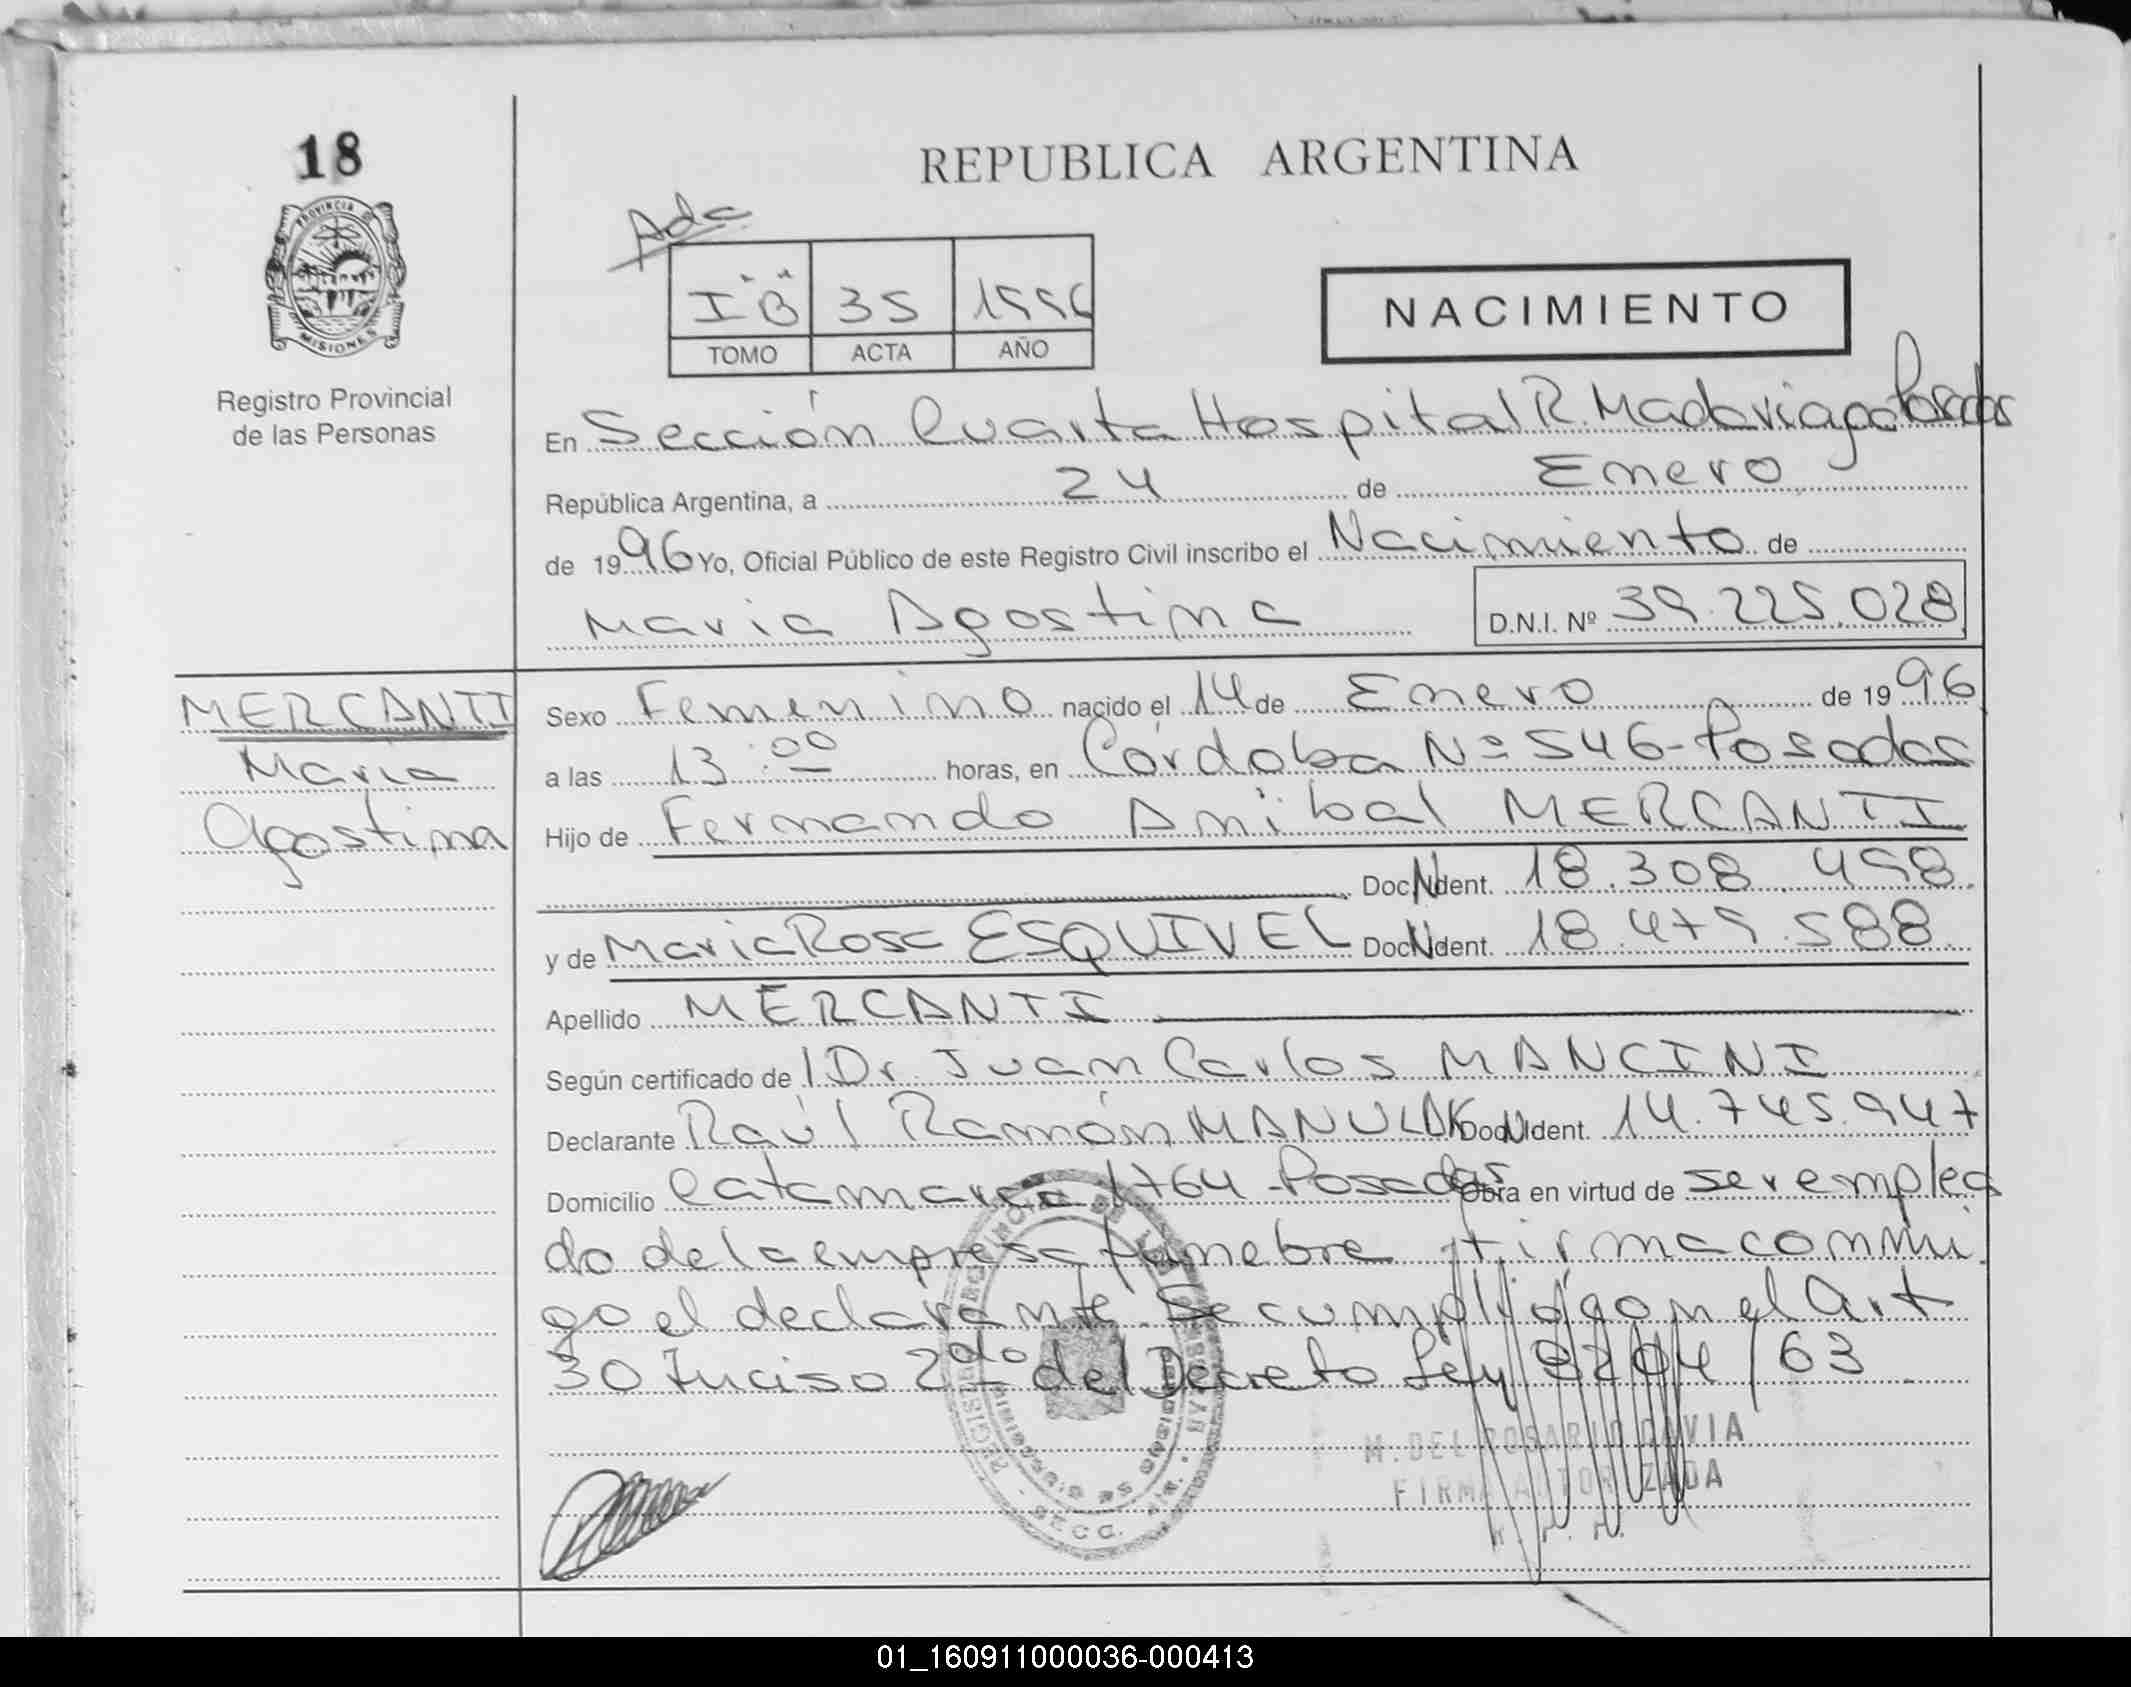 18
REPUBLICA ARGENTINA
PROVINCIA DE
MISIONES
Registro Provincial
de las Personas
Ada
I "B" 35 1996
TOMO ACTA AÑO
NACIMIENTO
En Sección Cuarta Hospital R. Madariaga Posadas
República Argentina, a 24 de Enero
de 1996 Yo, Oficial Público de este Registro Civil inscribo el Nacimiento de
Maria Agostina D.N.I. Nº 39.225.028
MERCANTI
Maria
Agostina
Sexo Femenino nacido el 14 de Enero de 1996
a las 13:00 horas, en Córdoba Nº 546-Posadas
Hijo de Fernando Anibal MERCANTI
Doc. N Ident. 18.308.498
y de Maria Rosa ESQUIVEL Doc. N Ident. 18.475.588
Apellido MERCANTI
Según certificado de Dr. Juan Carlos MANCINI
Declarante Raúl Ramón MANULAK Doc. N Ident. 14.745.947
Domicilio Catamarca 1764-Posadas Obra en virtud de ser emplea
do de la empresa fúnebre firma conmi
go el declarante. Se cumplió con el Art
30 Inciso 2do del Decreto Ley 8204/63
M. DEL ROSARIO DAVIA
FIRMA AUTORIZADA
01_160911000036-000413